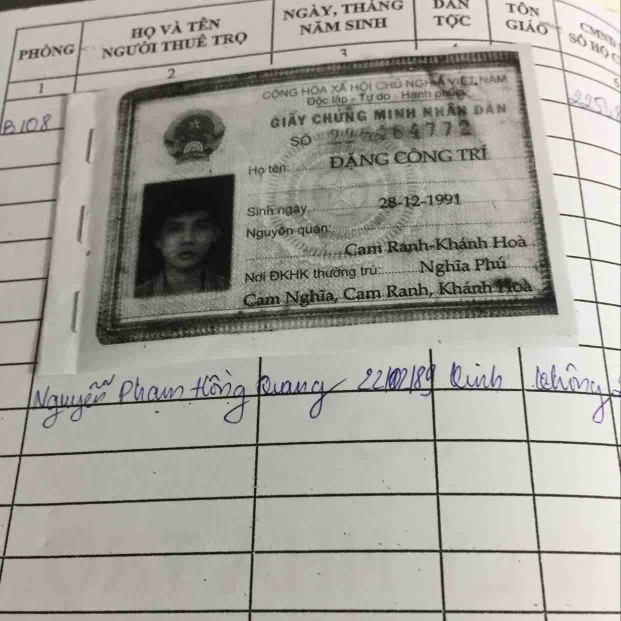 PHÒNG
HỌ VÀ TÊN
NGƯỜI THUÊ TRỌ
NGÀY, THÁNG
NĂM SINH
DÂN
TỘC
TÔN
GIÁO
CMND
SỐ HỘ
1
2
3
B108
CỘNG HÒA XÃ HỘI CHỦ NGHĨA VIỆT NAM
Độc lập - Tự do - Hạnh phúc
GIẤY CHỨNG MINH NHÂN DÂN
SỐ
Họ tên: ĐẶNG CÔNG TRÍ
Sinh ngày 28-12-1991
Nguyên quán:
Cam Ranh-Khánh Hoà
Nơi ĐKHK thường trú: Nghĩa Phú
Cam Nghĩa, Cam Ranh, Khánh Hoà
Nguyễn Phạm Hồng Quang Kinh không